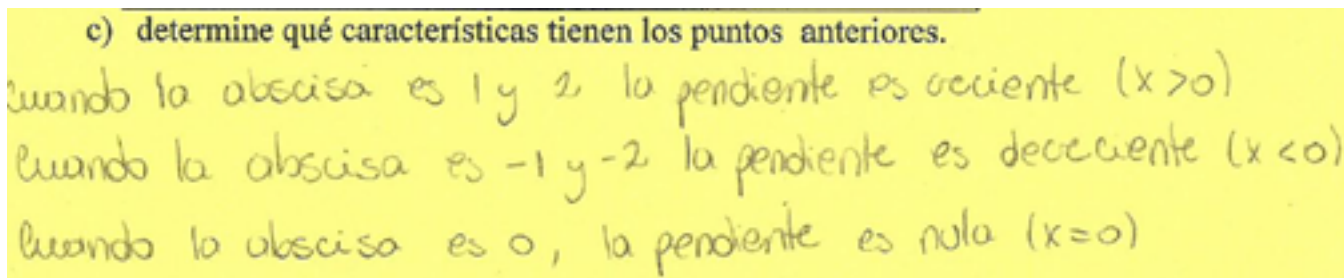 c) determine qué características tienen los puntos anteriores.
cuando la abscisa es 1 y 2 la pendiente es creciente (x>0)
Cuando la abscisa es -1 y -2 la pendiente es dececiente (x<0)
Cuando la abscisa es 0, la pendiente es nula (x=0)